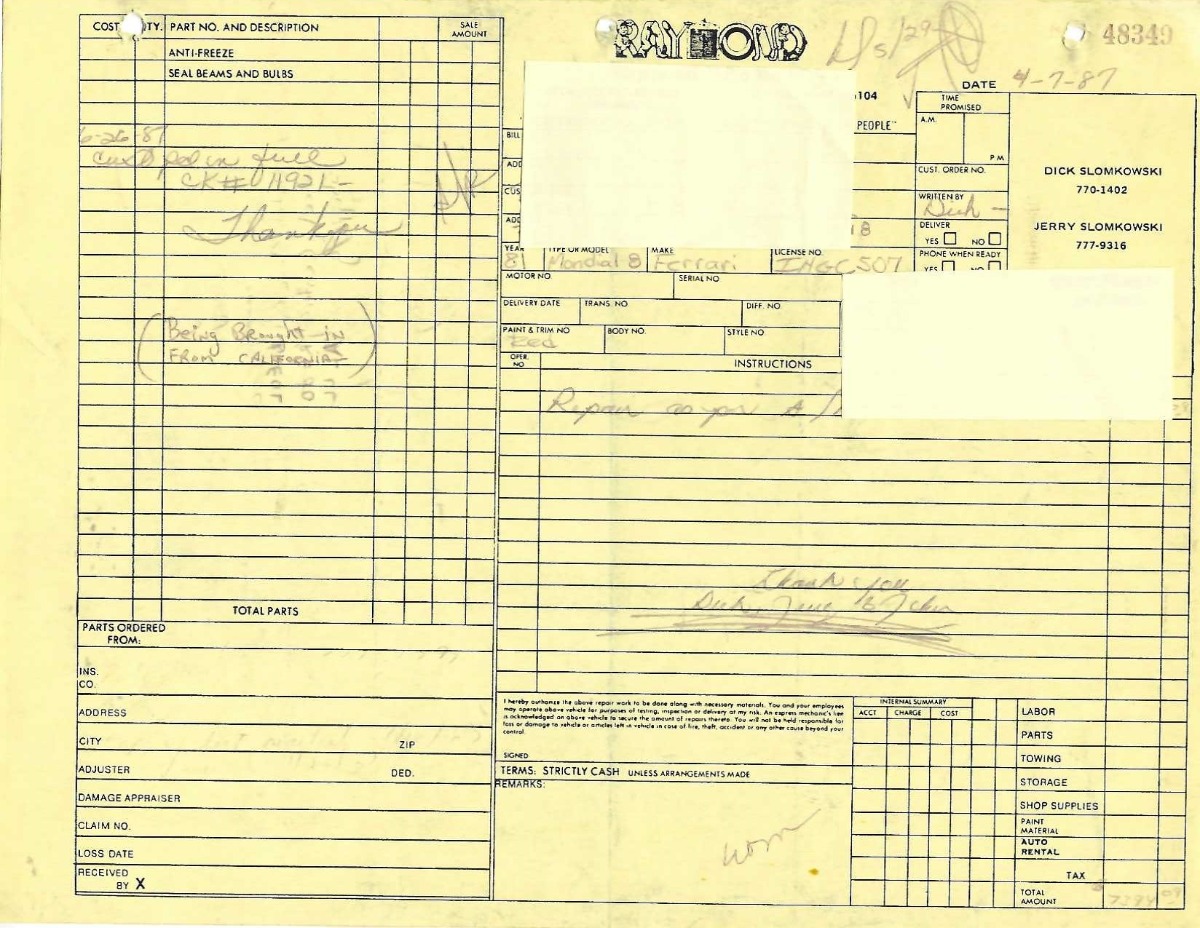 COST QTY. PART NO. AND DESCRIPTION SALE AMOUNT
ANTI-FREEZE
SEAL BEAMS AND BULBS
6-26-87
Cust pd in full
CK# 11921 -
Thank you
(Being Brought in
From California)
TOTAL PARTS
PARTS ORDERED
FROM:
INS.
CO.
ADDRESS
CITY ZIP
ADJUSTER DED.
DAMAGE APPRAISER
CLAIM NO.
LOSS DATE
RECEIVED
BY X
RAYMOND
48349
DATE 4-7-87
104
PEOPLE"
TIME
PROMISED
A.M.
P.M.
CUST. ORDER NO.
WRITTEN BY
Dick -
DELIVER
YES NO
PHONE WHEN READY
YES NO
DICK SLOMKOWSKI
770-1402
JERRY SLOMKOWSKI
777-9316
BILL
ADD
CUS
ADD
8
YEAR TYPE OR MODEL MAKE LICENSE NO.
81 Mondial 8 Ferrari 1HGC507
MOTOR NO. SERIAL NO.
DELIVERY DATE TRANS. NO. DIFF. NO.
PAINT & TRIM NO. BODY NO. STYLE NO.
Red
OPER.
NO
INSTRUCTIONS
Repair as per
Thank you
Dick, Jerry & John
I hereby authorize the above repair work to be done along with necessary materials. You and your employees
may operate above vehicle for purposes of testing, inspection or delivery at my risk. An express mechanic's lien
is acknowledged on above vehicle to secure the amount of repairs thereto. You will not be held responsible for
loss or damage to vehicle or articles left in vehicle in case of fire, theft, accident or any other cause beyond your
control.
SIGNED
TERMS: STRICTLY CASH UNLESS ARRANGEMENTS MADE
REMARKS:
INTERNAL SUMMARY
ACCT. CHARGE COST
LABOR
PARTS
TOWING
STORAGE
SHOP SUPPLIES
PAINT
MATERIAL
AUTO
RENTAL
TAX
TOTAL
AMOUNT